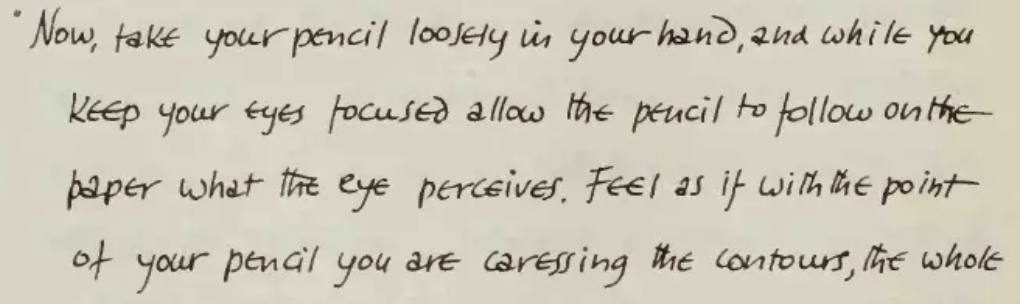 "Now, take your pencil loosely in your hand, and while you
keep your eyes focused allow the pencil to follow on the
paper what the eye perceives. Feel as if with the point
of your pencil you are caressing the contours, the whole